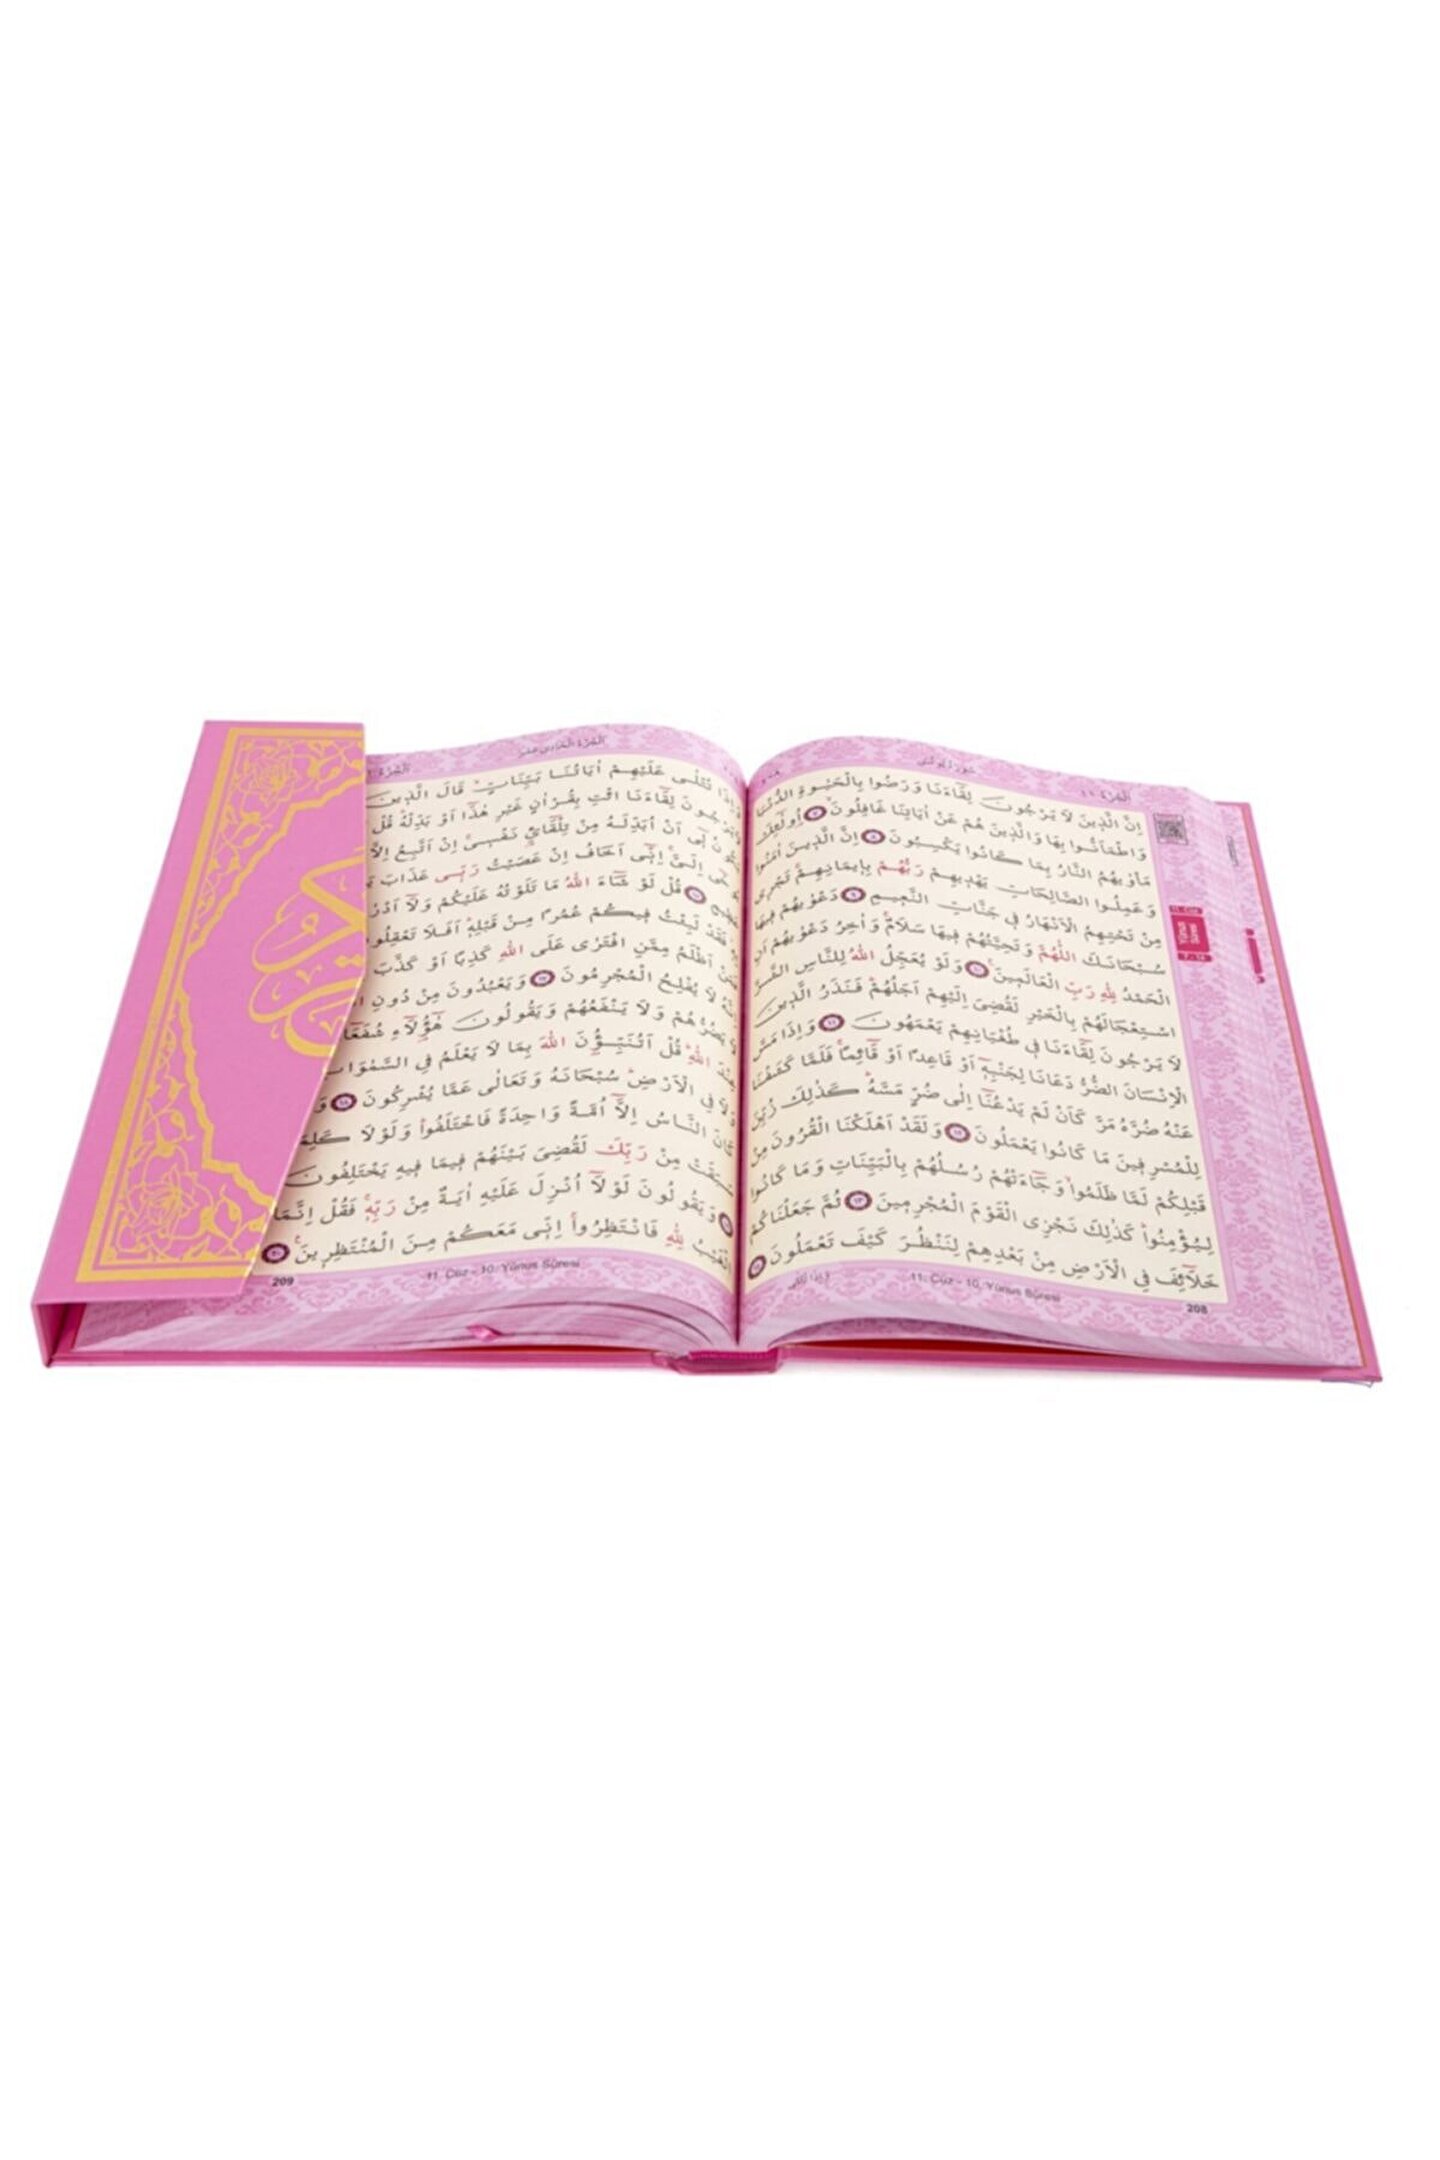 الجزء ١١
سورة يونس
٢٠٨
اِنَّ الَّذ۪ينَ لَا يَرْجُونَ لِقَٓاءَنَا وَرَضُوا بِالْحَيٰوةِ الدُّنْيَا
وَاطْمَاَنُّوا بِهَا وَالَّذ۪ينَ هُمْ عَنْ اٰيَاتِنَا غَافِلُونَۙ ﴿٧﴾ اُو۬لٰٓئِكَ
مَاْوٰيهُمُ النَّارُ بِمَا كَانُوا يَكْسِبُونَ ﴿٨﴾ اِنَّ الَّذ۪ينَ اٰمَنُوا
وَعَمِلُوا الصَّالِحَاتِ يَهْد۪يهِمْ رَبُّهُمْ بِا۪يمَانِهِمْۚ تَجْر۪ي
مِنْ تَحْتِهِمُ الْاَنْهَارُ ف۪ي جَنَّاتِ النَّع۪يمِ ﴿٩﴾ دَعْوٰيهُمْ ف۪يهَا
سُبْحَانَكَ اللّٰهُمَّ وَتَحِيَّتُهُمْ ف۪يهَا سَلَامٌۚ وَاٰخِرُ دَعْوٰيهُمْ اَنِ
الْحَمْدُ لِلّٰهِ رَبِّ الْعَالَم۪ينَ۟ ﴿١٠﴾ وَلَوْ يُعَجِّلُ اللّٰهُ لِلنَّاسِ الشَّرَّ
اسْتِعْجَالَهُمْ بِالْخَيْرِ لَقُضِيَ اِلَيْهِمْ اَجَلُهُمْۜ فَنَذَرُ الَّذ۪ينَ
لَا يَرْجُونَ لِقَٓاءَنَا ف۪ي طُغْيَانِهِمْ يَعْمَهُونَ ﴿١١﴾ وَاِذَا مَسَّ
الْاِنْسَانَ الضُّرُّ دَعَانَا لِجَنْبِه۪ٓ اَوْ قَاعِدًا اَوْ قَٓائِمًاۚ فَلَمَّا كَشَفْنَا
عَنْهُ ضُرَّهُ مَرَّ كَاَنْ لَمْ يَدْعُنَٓا اِلٰى ضُرٍّ مَسَّهُۜ كَذٰلِكَ زُيِّنَ
لِلْمُسْرِف۪ينَ مَا كَانُوا يَعْمَلُونَ ﴿١٢﴾ وَلَقَدْ اَهْلَكْنَا الْقُرُونَ مِنْ
قَبْلِكُمْ لَمَّا ظَلَمُواۙ وَجَٓاءَتْهُمْ رُسُلُهُمْ بِالْبَيِّنَاتِ وَمَا كَانُوا
لِيُؤْمِنُواۜ كَذٰلِكَ نَجْزِي الْقَوْمَ الْمُجْرِم۪ينَ ﴿١٣﴾ ثُمَّ جَعَلْنَاكُمْ
خَلَٓائِفَ فِي الْاَرْضِ مِنْ بَعْدِهِمْ لِنَنْظُرَ كَيْفَ تَعْمَلُونَ ﴿١٤﴾
11. Cüz - 10. Yûnus Sûresi
208
11. Cüz
Yûnus
Sûresi
7 - 14
الجزء الحادي عشر
وَاِذَا تُتْلٰى عَلَيْهِمْ اٰيَاتُنَا بَيِّنَاتٍۙ قَالَ الَّذ۪ينَ
يَرْجُونَ لِقَٓاءَنَا ائْتِ بِقُرْاٰنٍ غَيْرِ هٰذَٓا اَوْ بَدِّلْهُۜ قُلْ
يَكُونُ ل۪ٓي اَنْ اُبَدِّلَهُ مِنْ تِلْقَٓائِ۬ نَفْس۪يۚ اِنْ اَتَّبِعُ اِلَّا
اِلَيَّۚ اِنّ۪ٓي اَخَافُ اِنْ عَصَيْتُ رَبّ۪ي عَذَابَ
عَظ۪يمٍ ﴿١٥﴾ قُلْ لَوْ شَٓاءَ اللّٰهُ مَا تَلَوْتُهُ عَلَيْكُمْ وَلَٓا
فَقَدْ لَبِثْتُ ف۪يكُمْ عُمُرًا مِنْ قَبْلِه۪ۜ اَفَلَا تَعْقِلُونَ
اَظْلَمُ مِمَّنِ افْتَرٰى عَلَى اللّٰهِ كَذِبًا اَوْ كَذَّبَ
لَا يُفْلِحُ الْمُجْرِمُونَ ﴿١٧﴾ وَيَعْبُدُونَ مِنْ دُونِ
لَا يَضُرُّهُمْ وَلَا يَنْفَعُهُمْ وَيَقُولُونَ هٰٓؤُ۬لَٓاءِ
عِنْدَ اللّٰهِۜ قُلْ اَتُنَبِّؤُ۫نَ اللّٰهَ بِمَا لَا يَعْلَمُ فِي السَّمٰوَاتِ
وَلَا فِي الْاَرْضِۜ سُبْحَانَهُ وَتَعَالٰى عَمَّا يُشْرِكُونَ ﴿١٨﴾
كَانَ النَّاسُ اِلَّٓا اُمَّةً وَاحِدَةً فَاخْتَلَفُواۜ وَلَوْلَا
سَبَقَتْ مِنْ رَبِّكَ لَقُضِيَ بَيْنَهُمْ ف۪يمَا ف۪يهِ يَخْتَلِفُونَ
﴿١٩﴾ وَيَقُولُونَ لَوْلَٓا اُنْزِلَ عَلَيْهِ اٰيَةٌ مِنْ رَبِّه۪ۚ فَقُلْ اِنَّمَا
الْغَيْبُ لِلّٰهِ فَانْتَظِرُواۚ اِنّ۪ي مَعَكُمْ مِنَ الْمُنْتَظِر۪ينَ۟ ﴿٢٠﴾
11. Cüz - 10. Yûnus Sûresi
209